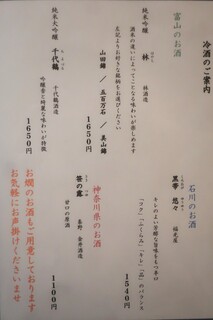 冷酒のご案内
富山のお酒
純米吟醸 林 林酒造
酒米の違いによってことなる味わいが楽しめます
左記よりお好きな銘柄をお選びください
山田錦 / 五百万石 / 美山錦
1650円
純米大吟醸 千代鶴 千代鶴酒造
吟醸香と綺麗な味わいが特徴
1650円
石川のお酒
黒帯 悠々 福光屋
キレのよい芳醇な旨味をもつ辛口
「コク」「ふくらみ」「キレ」「品」のバランス
1540円
神奈川県のお酒
笹の露 金井酒造
甘口の原酒
1100円
お燗のお酒もご用意しております
お気軽にお声掛けくださいませ